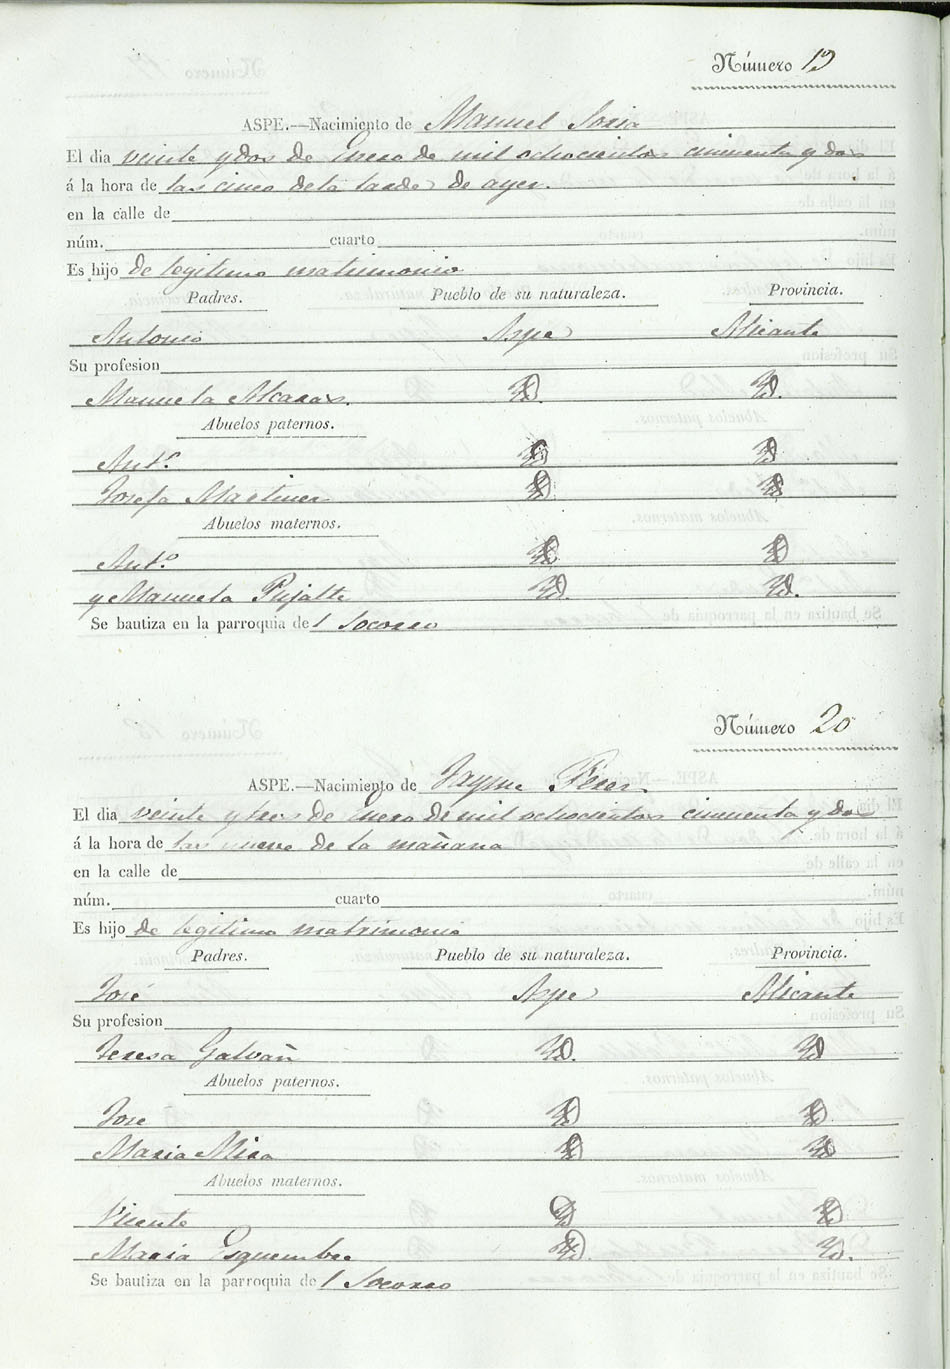 Número 19
ASPE.—Nacimiento de Manuel Soria
El dia veinte y dos de Enero de mil ochocientos cincuenta y dos
á la hora de las cinco de la tarde de ayer.
en la calle de
núm. cuarto
Es hijo de legitimo matrimonio
Padres. Pueblo de su naturaleza. Provincia.
Antonio Aspe Alicante
Su profesion
Manuela Alcaras. Id. Id.
Abuelos paternos.
Antº Id Id
Josefa Martinez Id Id
Abuelos maternos.
Antº Id Id
y Manuela Pujalte Id. Id.
Se bautiza en la parroquia de l Socorro
Número 20
ASPE.—Nacimiento de Jayme Perez.
El dia veinte y tres de Enero de mil ochocientos cincuenta y dos
á la hora de las nueve de la mañana
en la calle de
núm. cuarto
Es hijo de legitimo matrimonio
Padres. Pueblo de su naturaleza. Provincia.
José Aspe Alicante
Su profesion
Teresa Galvañ Id. Id
Abuelos paternos.
Jose Id Id
Maria Mira Id Id
Abuelos maternos.
Vicente Id Id
Maria Esquembre Id. Id.
Se bautiza en la parroquia de l Socorro